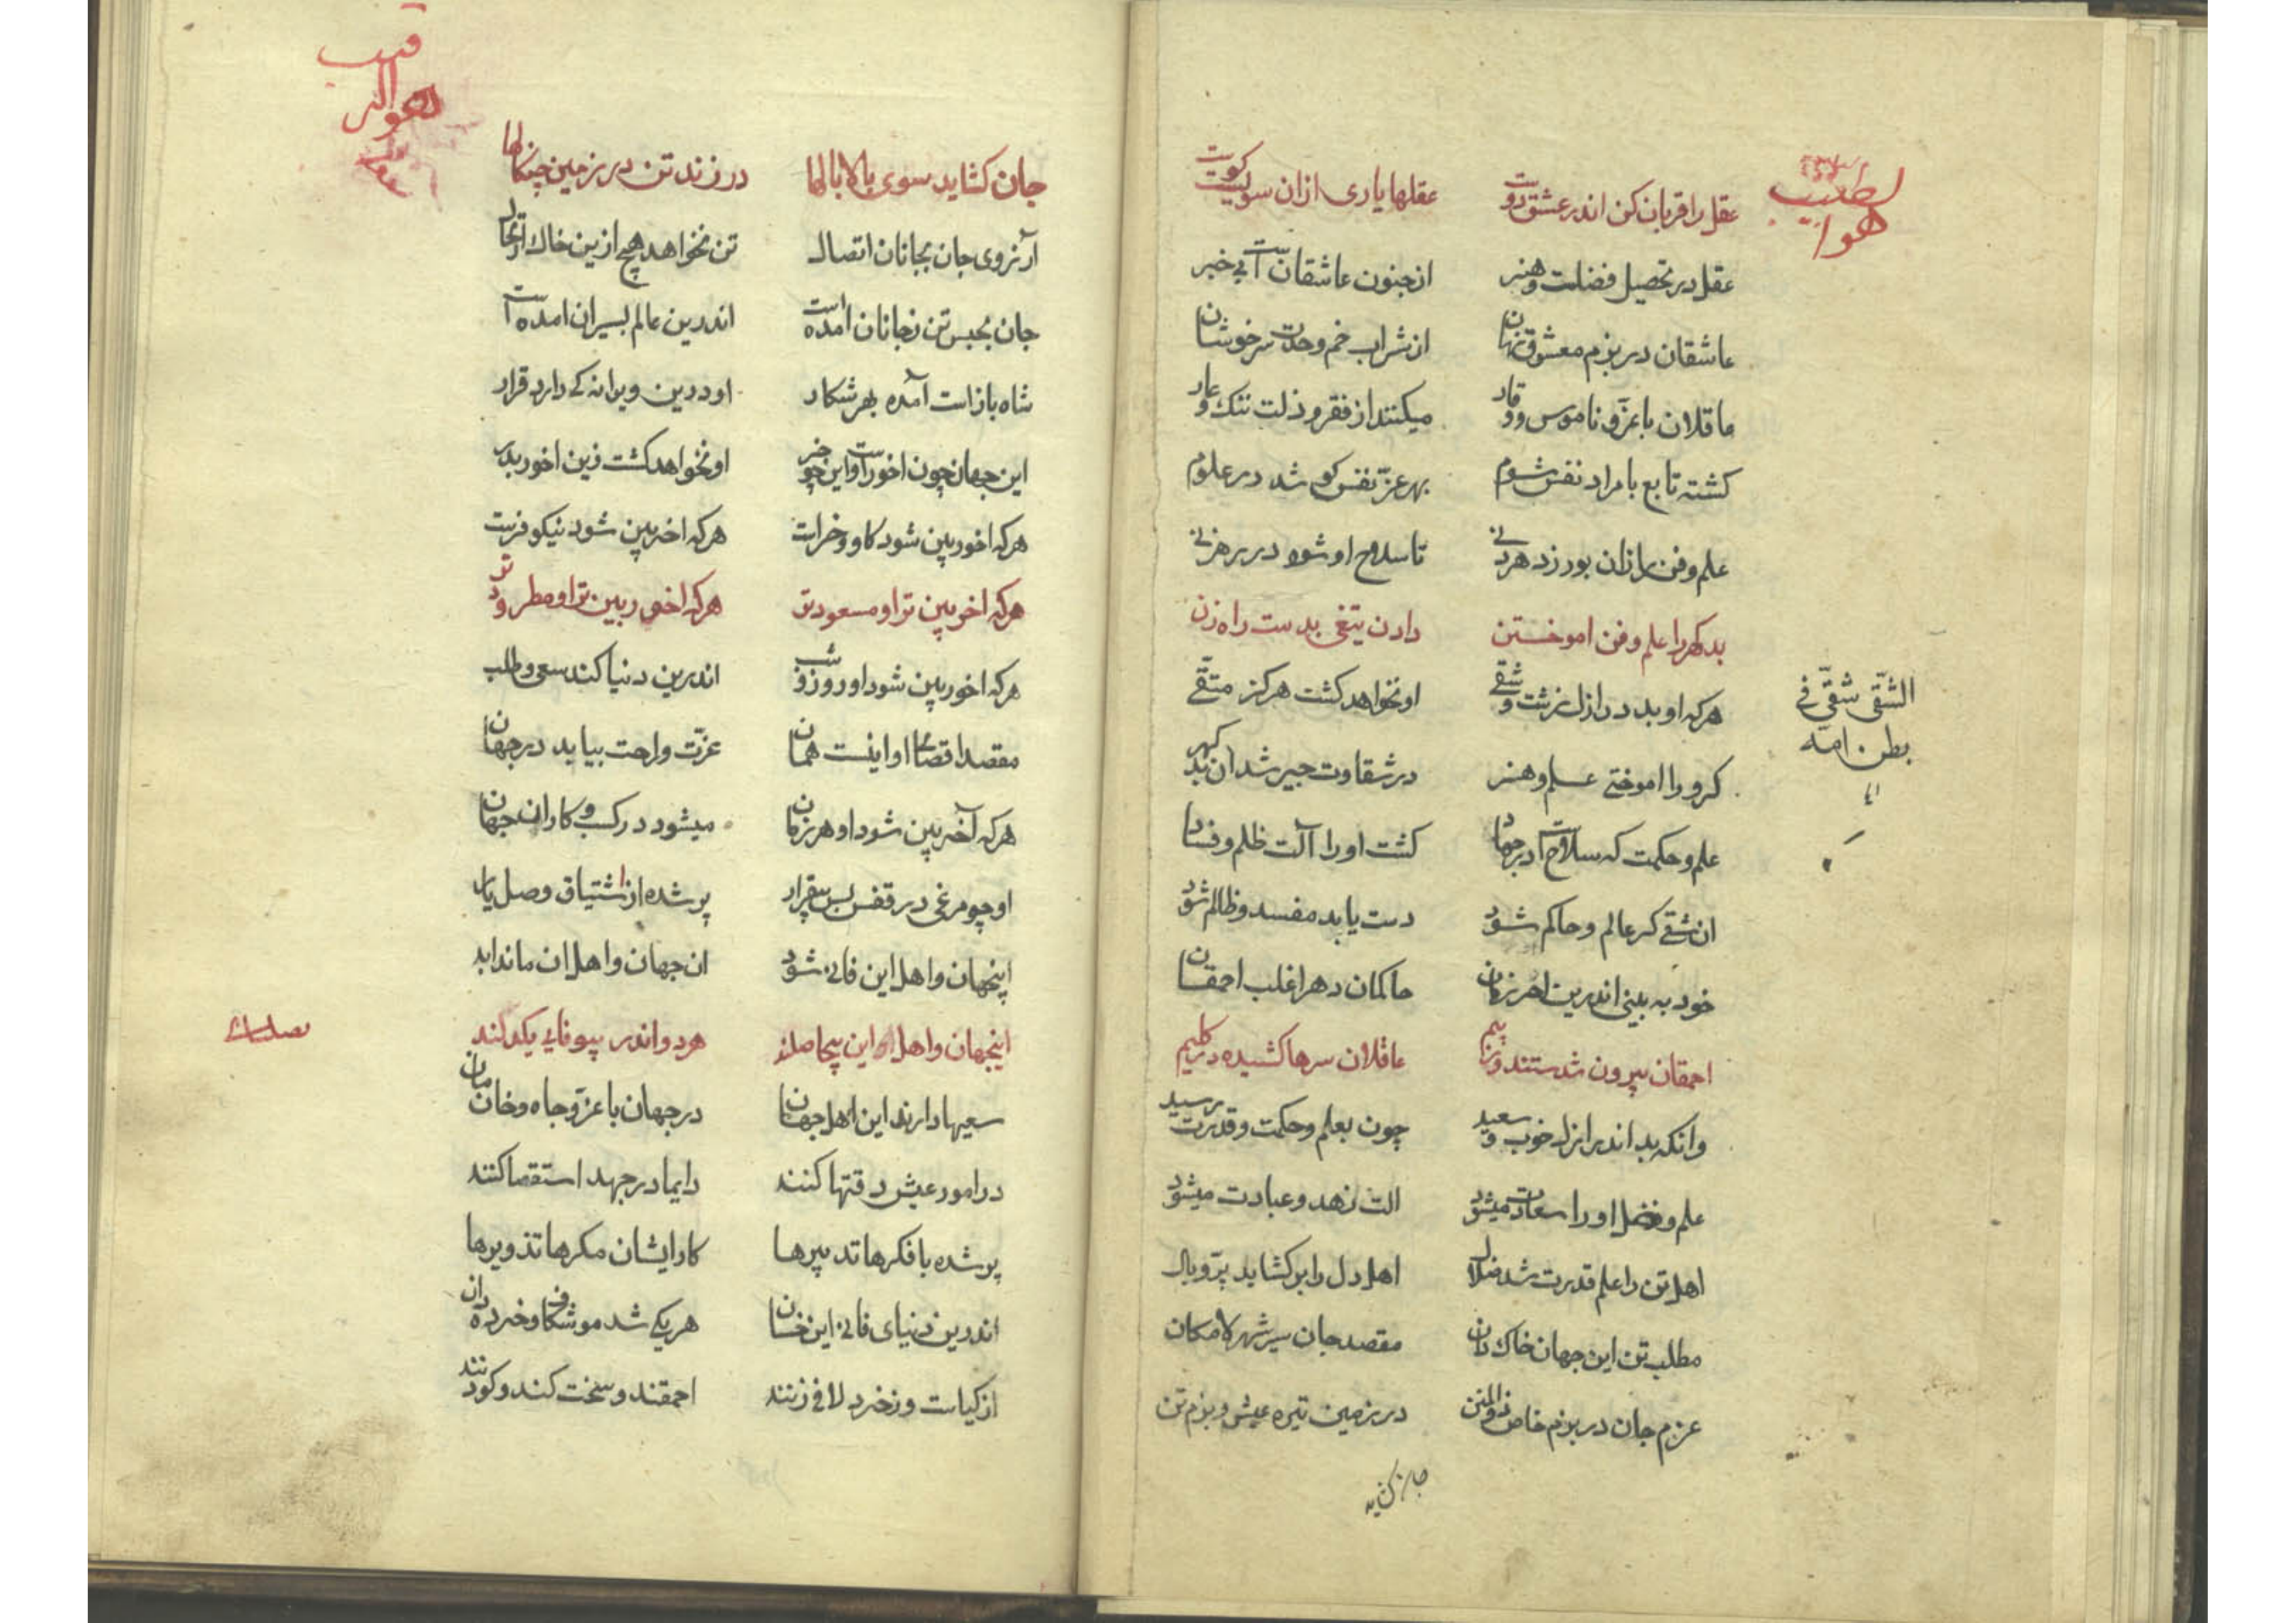 عقل را قربان کن اندر عشق دوست عقلها یاری ازان سویست کوست
عقل در تحصیل فضلست و هنر از جنون عاشقانست آ بی خبر
عاشقان در بزم معشوق نهان از شراب خم وحدت سرخوشان
عاقلان با عزّ و ناموس و وقار میکنند از فقر و ذلت ننك و عار
کشته تابع با مراد نفس شوم بهر عزّ نفس کو شد در علوم
علم و فن را زان بورزد هر دنی تا سلاح او شود در رهزنی
بدکهر را علم و فن اموختن دادن تیغی بدست راه زن
هرکه او بد در ازل زشت و شقی او نخواهد کشت هرکز متّقی
الشّقی شقیّ فی
بطن امّه
کر و را اموختی علم و هنر در شقاوت چیر شد ان بد کهر
علم و حکمت که سلاحست آ در جهاد کشت او را آلت ظلم و فساد
ان شقی کر عالم و حاکم شود دست یابد مفسد و ظالم شود
خود به بینی اندرین اخر زمان حاکمان دهر اغلب احمقان
احمقان بیرون شدستند و ز بیم عاقلان سرها کشیده در کلیم
وانکه بد اندر ازل خوب و سعید چون بعلم و حکمت و قدرت رسید
علم و فضل او را سعادت میشود الت زهد و عبادت میشود
اهل تن را علم قدرت شد ضلال اهل دل را بر کشاید پرّ و بال
مطلب تن این جهان خاك دان مقصد جان سیر شهر لامکان
عزم جان در بزم خاص ذو المنن در زمین تیره عیش و بزم تن
جان کشاید
جان کشاید سوی بالا بالها در زند تن در زمین چنکالها
آرزوی جان بجانان اتصال تن نخواهد هیچ ازین خاك ارتحال
جان بحبس تن ز جانان امده است اندرین عالم بسیران امده ست آ
شاه بازاست آمده بهر شکار او درین ویرانه کی دارد قرار
این جهان چون اخورست آ و این چو خر او نخواهد کشت زین اخور بدر
هرکه اخوربین شود کاو و خراست هرکه اخربین شود نیکو فرست
هرکه اخربین ترا و مسعود تر هرکه اخوربین ترا و مطرود تر
هرکه اخوربین شود او روز و شب اندرین دنیا کند سعی و طلب
مقصد اقصای او اینست همان عزّت و راحت بیابد در جهان
هرکه آخربین شود او هر زمان میشود در کسب و کار ان جهان
او چو مرغی در قفس بس بیقرار پر شده از اشتیاق وصل یار
اینجهان و اهل این فانی شود ان جهان و اهل ان ماند ابد
اینجهان و اهل این بیحاصلند هر دو اندر بیوفایی یکدلند
سعیها دارند این اهل جهان در جهان با عزّ و جاه و خان مان
در امور عیش دقتها کنند دایما در جهد استقصا کنند
پر شده با فکرها تدبیرها کار ایشان مکرها تذویرها
اندرین دنیای فانی این خسان هر یکی شد موشکاف و خرده دان
از کیاست و ز خرد لافی زنند احمقند و سخت کند و کودنند